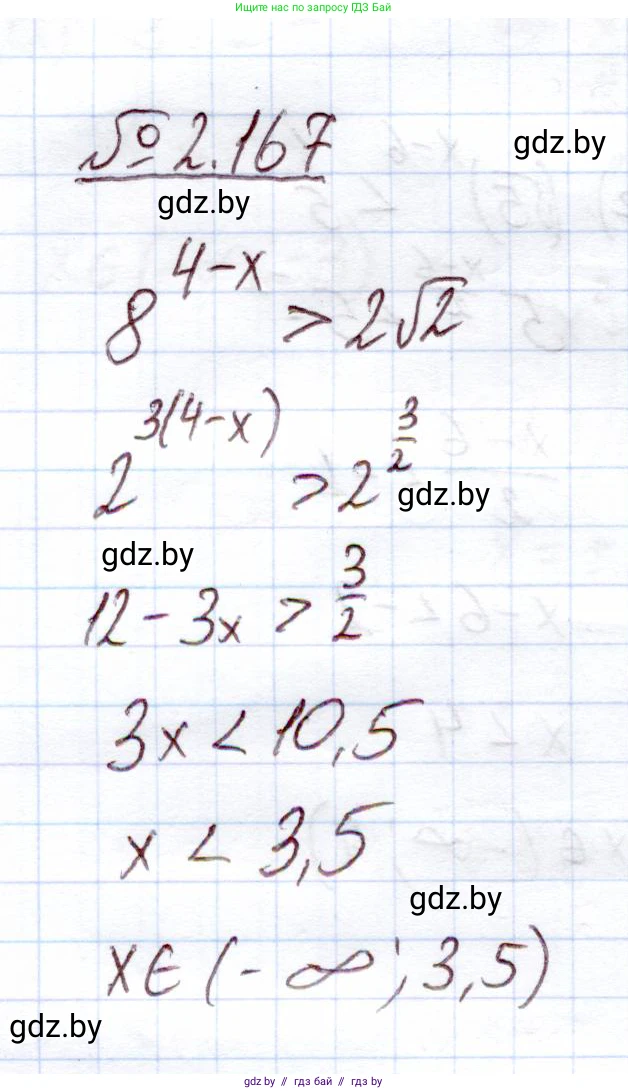 Ищите нас по запросу ГДЗ Бай
№ 2.167
gdz.by
gdz.by
8^{4-x} > 2√2
2^{3(4-x)} > 2^{3/2}
gdz.by
gdz.by
12 - 3x > 3/2
3x < 10,5
x < 3,5
gdz.by
x ∈ (-∞; 3,5)
gdz.by
gdz.by // гдз бай // гдз by